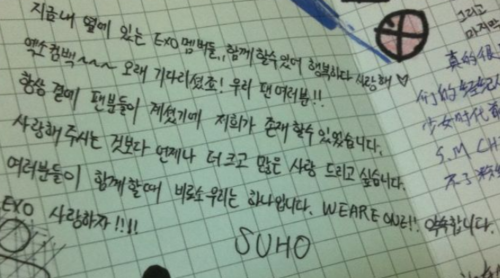 지금 내 옆에 있는 EXO 멤버들, 함께 할수 있어 행복하다 사랑해 ♡
엑소 컴백~~~ 오래 기다리셨죠! 우리 팬 여러분!!
항상 곁에 팬분들이 계셨기에 저희가 존재할수 있었습니다.
사랑해 주시는 것보다 언제나 더 크고 많은 사랑 드리고 싶습니다.
여러분들이 함께 할때 비로소 우리는 하나입니다. WE ARE ONE!! 약속합니다.
EXO 사랑하자!!!!
SUHO
그리고
마지막
真的很
们的
少女时代
S.M